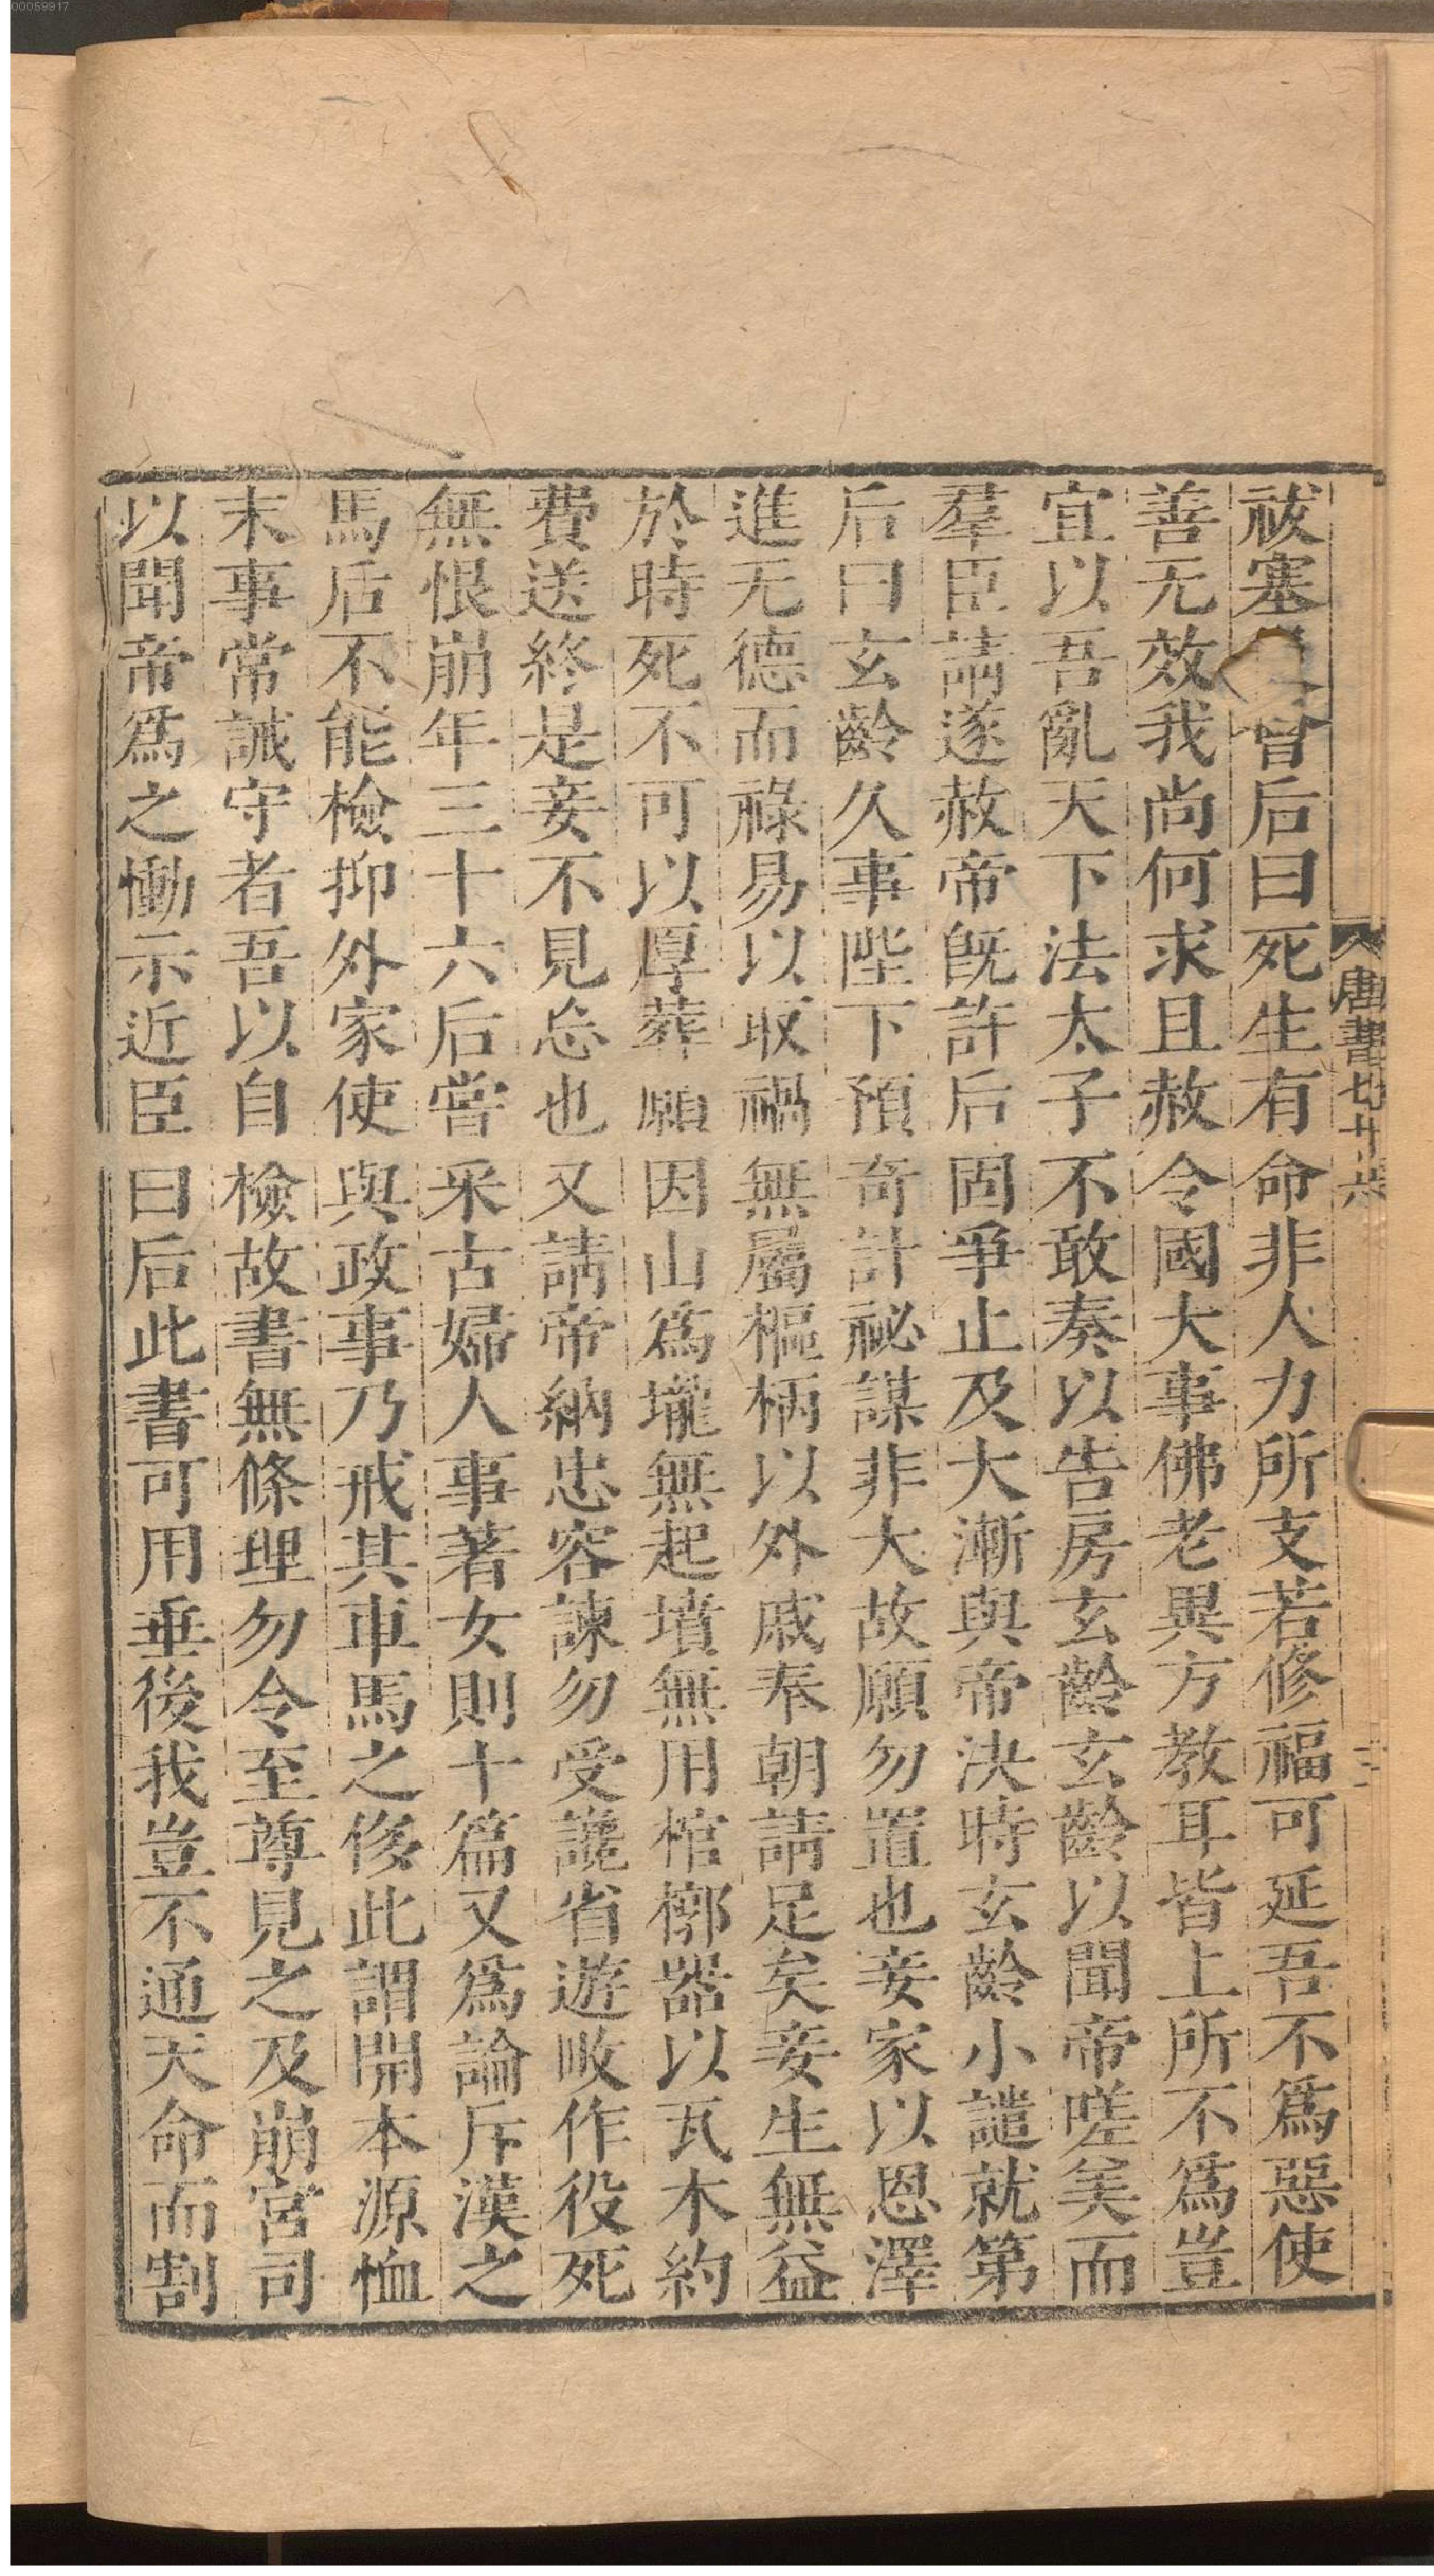 00059917
唐書七十六
三
祓塞會后曰死生有命非人力所支若修福可延吾不爲惡使
善无效我尚何求且赦令國大事佛老異方教耳皆上所不爲豈
宜以吾亂天下法太子不敢奏以告房玄齡玄齡以聞帝嗟美而
羣臣請遂赦帝旣許后固爭止及大漸與帝決時玄齡小譴就第
后曰玄齡久事陛下預奇計祕謀非大故願勿置也妾家以恩澤
進无德而祿易以取禍無屬樞柄以外戚奉朝請足矣妾生無益
於時死不可以厚葬願因山爲壠無起墳無用棺槨器以瓦木約
費送終是妾不見忘也又請帝納忠容諫勿受讒省遊畋作役死
無恨崩年三十六后嘗采古婦人事著女則十篇又爲論斥漢之
馬后不能檢抑外家使與政事乃戒其車馬之侈此謂開本源恤
末事常誡守者吾以自檢故書無條理勿令至尊見之及崩宮司
以聞帝爲之慟示近臣曰后此書可用垂後我豈不通天命而割